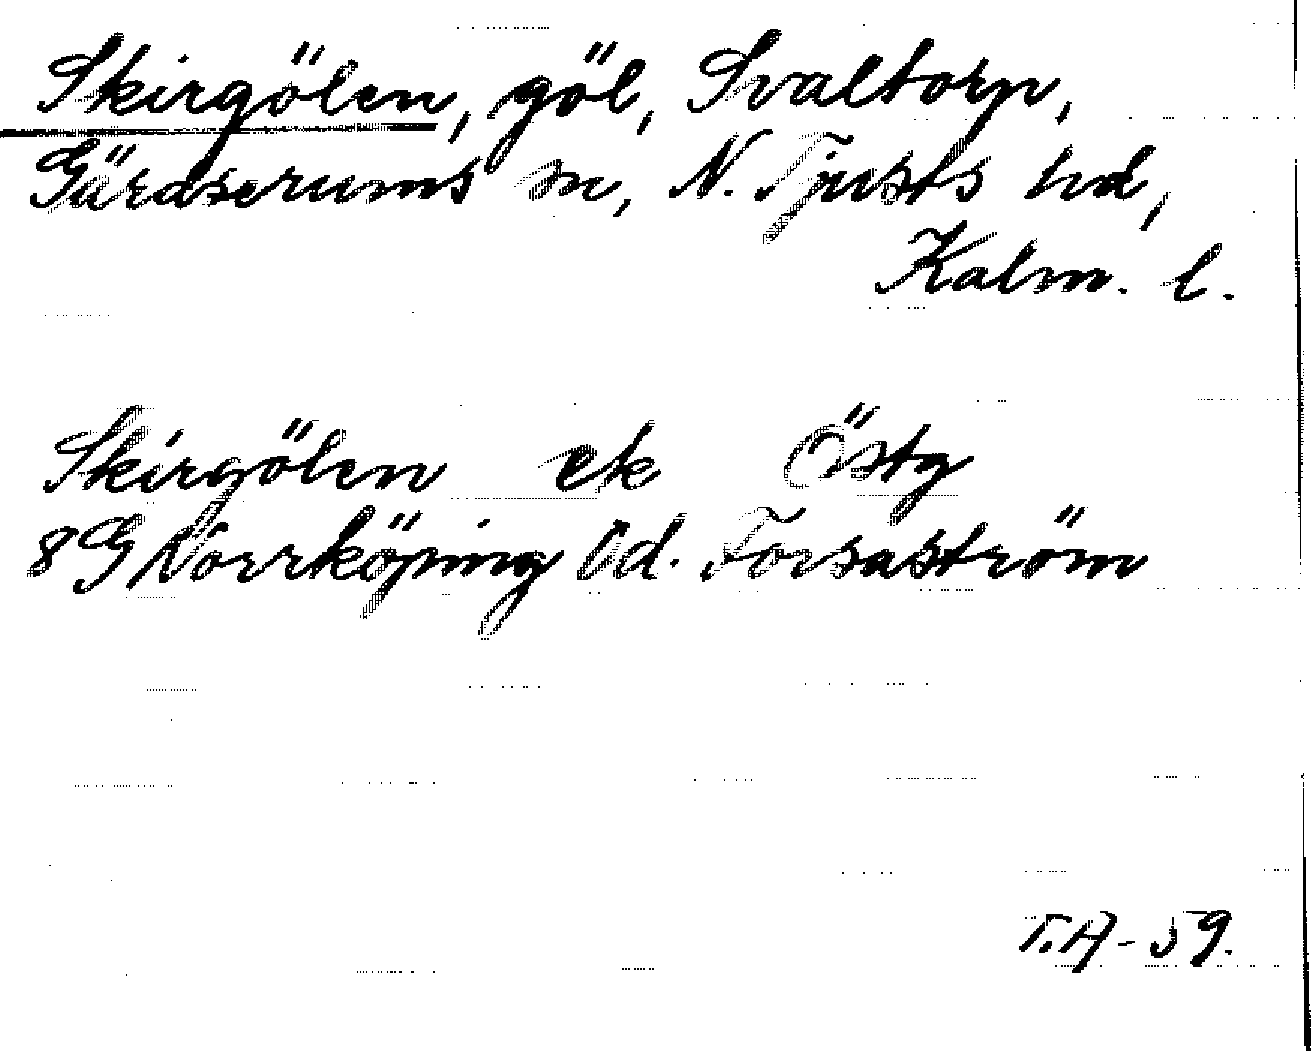 Skirgölen, göl, Svaltorp,
Gärdserums sn, N. Tjusts hd,
Kalm. l.
Skirgölen ek Östg
8G Norrköping Od. Forsaström
T.A-59.